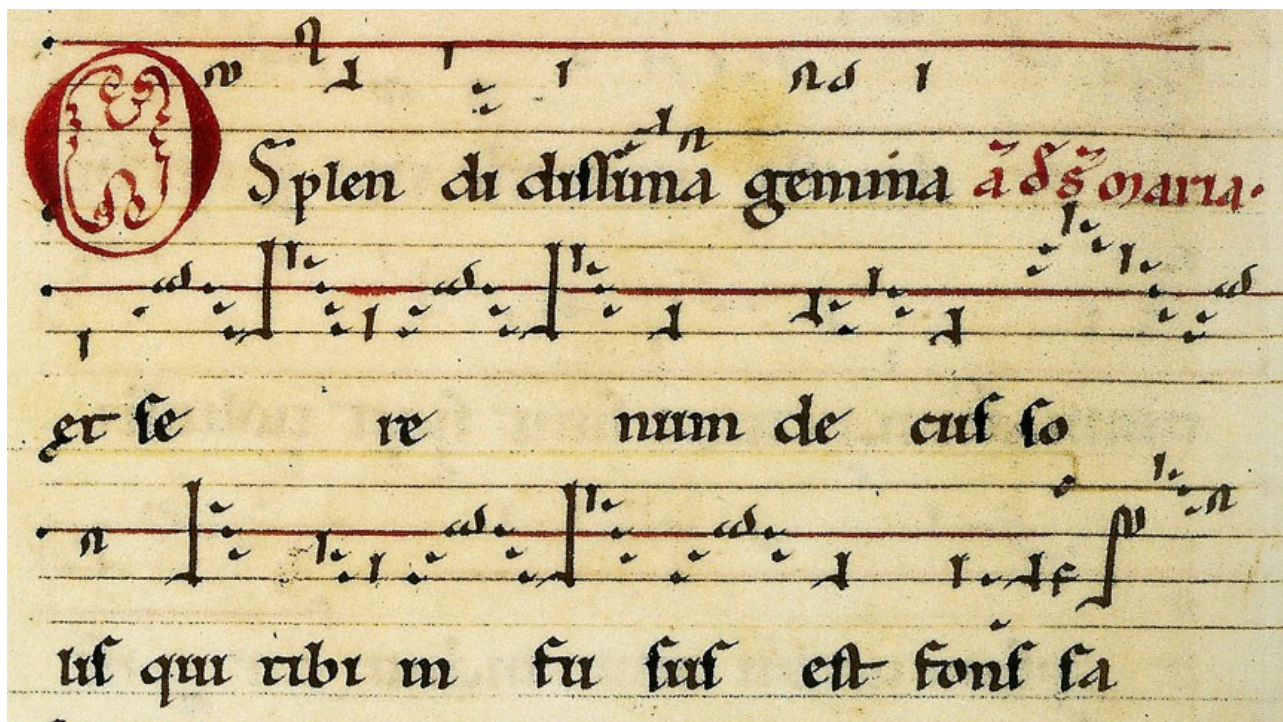 O Splen di dissima gemma ā d s̄ maria.
et se re num de cus so
lis qui tibi in fu sus est fons sa